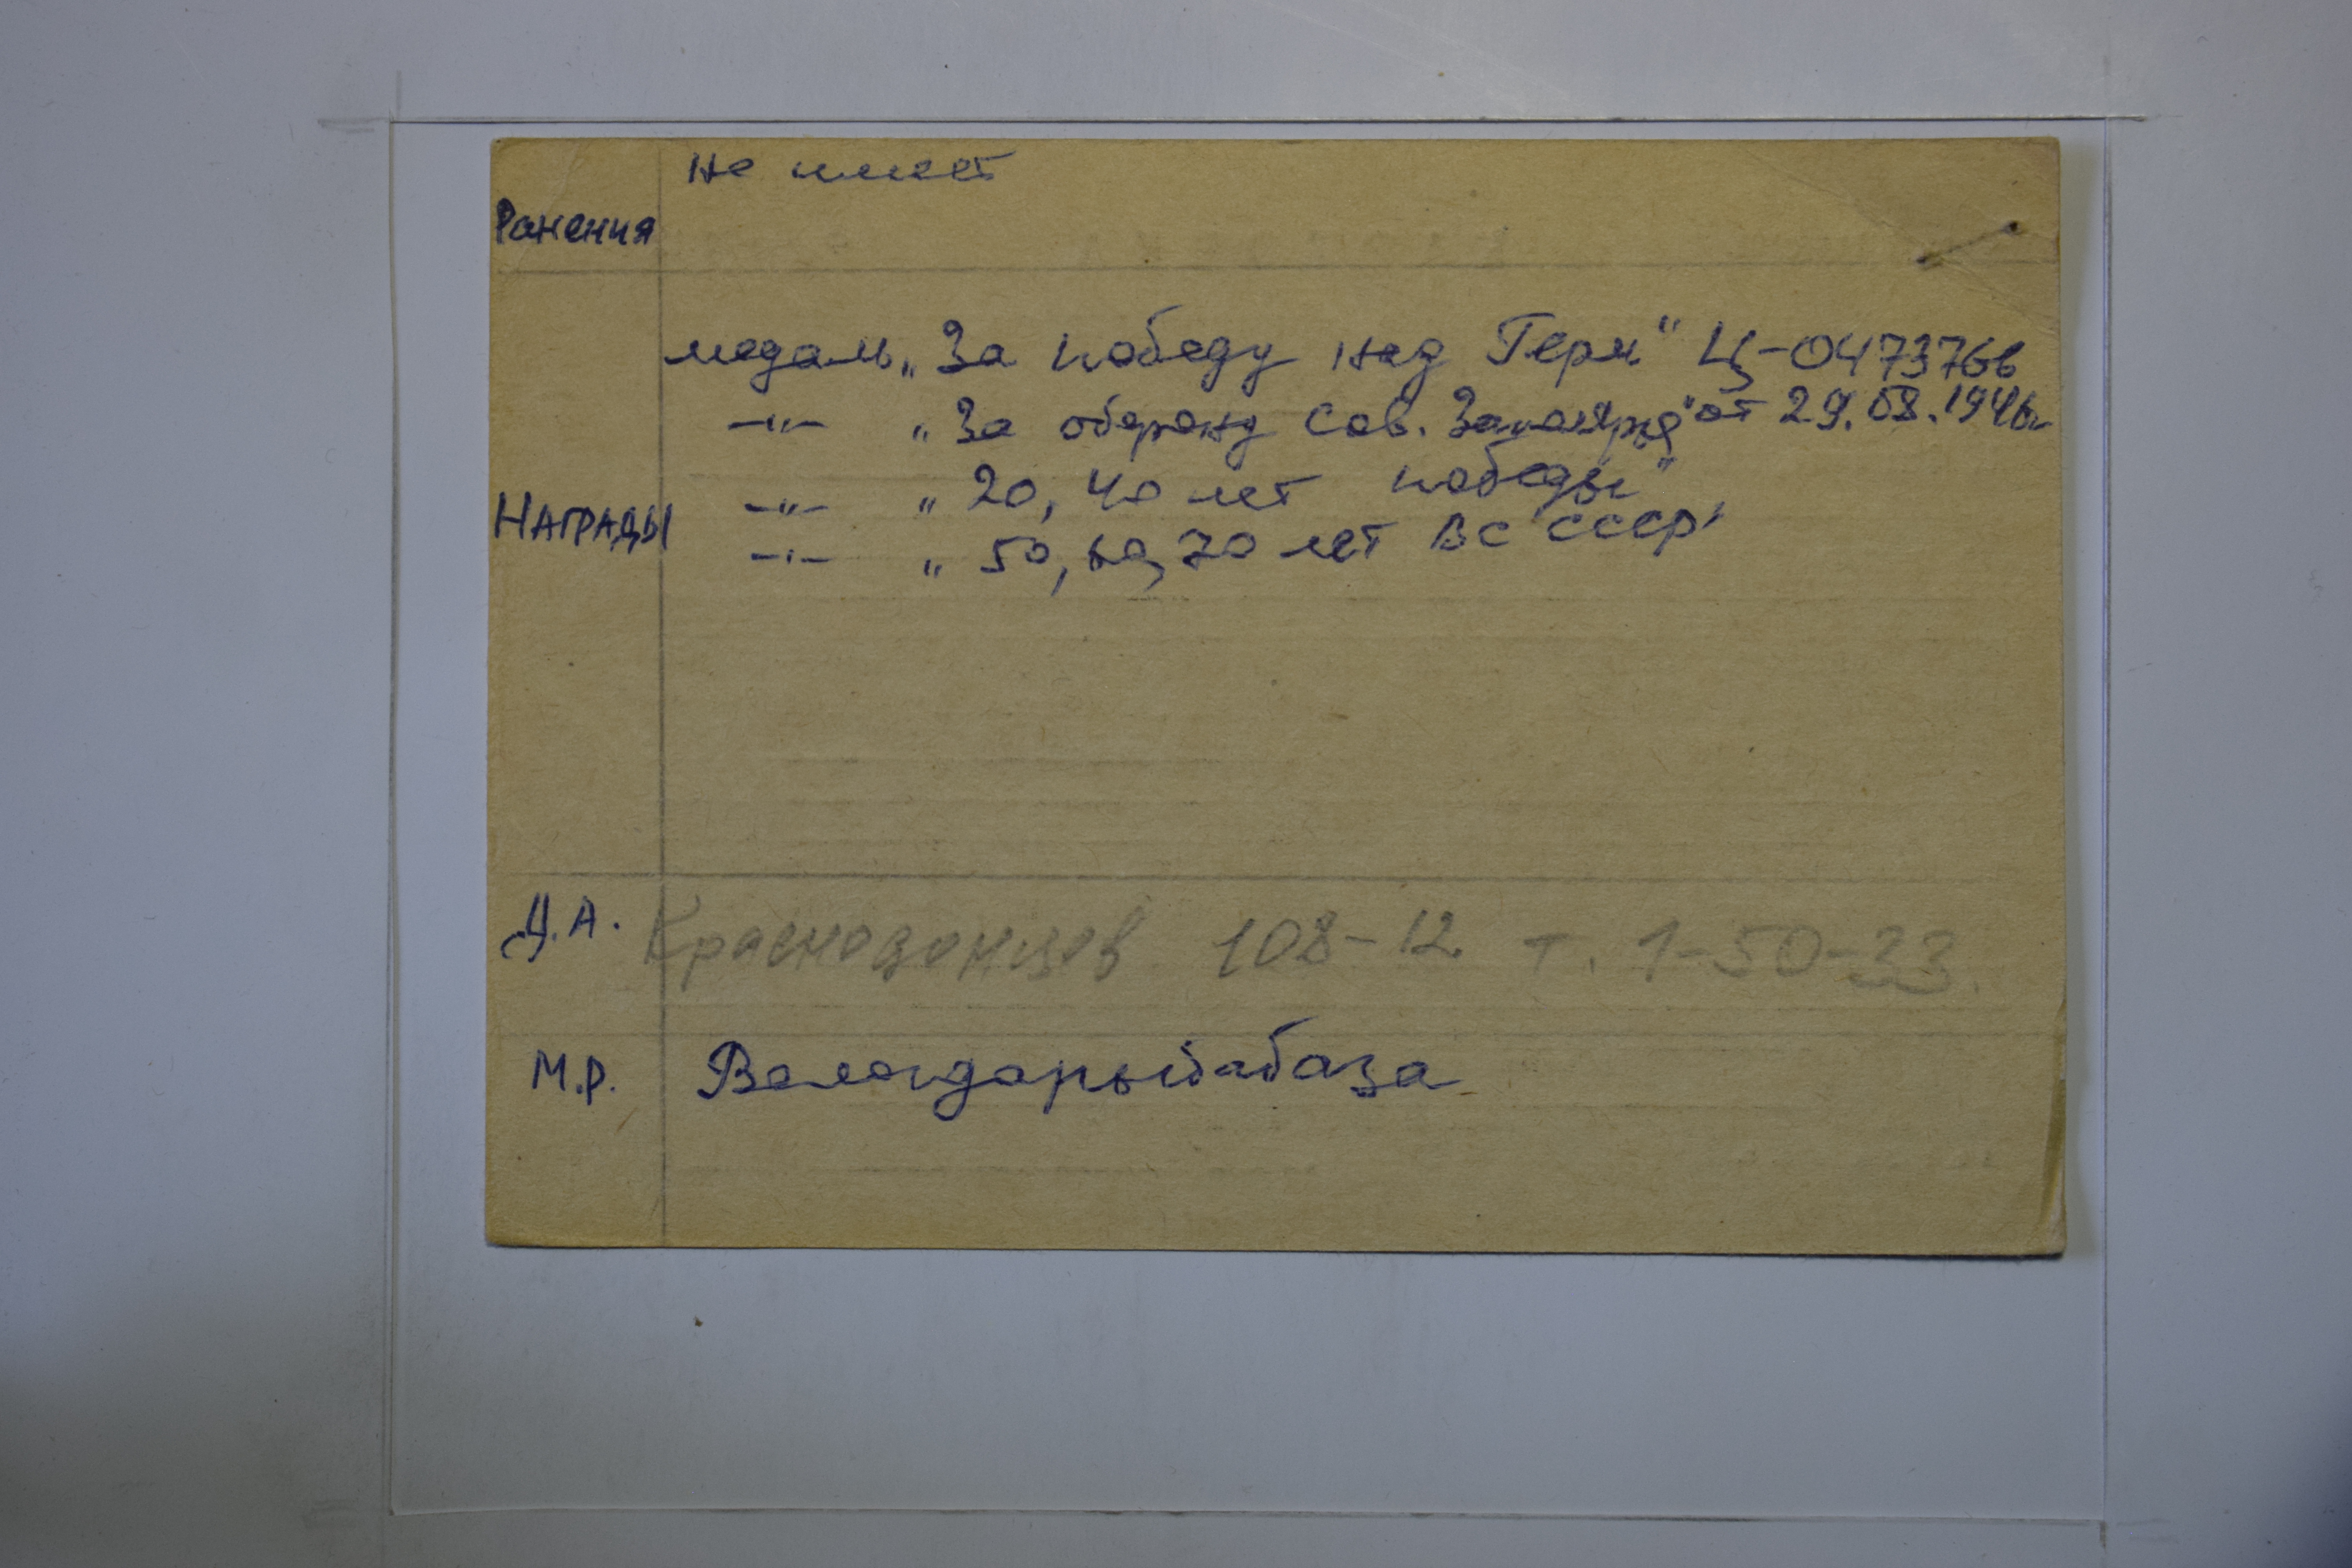 не имеет
Ранения
медаль „За победу над Герм" Ц-0473766
—"— „За оборону Сов. Заполярья" от 29.08.1946г
—"— „20, 40 лет победы"
Награды
—"— „50, 60, 70 лет ВС СССР"
Д.А. Краснодонцев 108-12 т. 1-50-33.
М.Р. Вологдарыбабаза